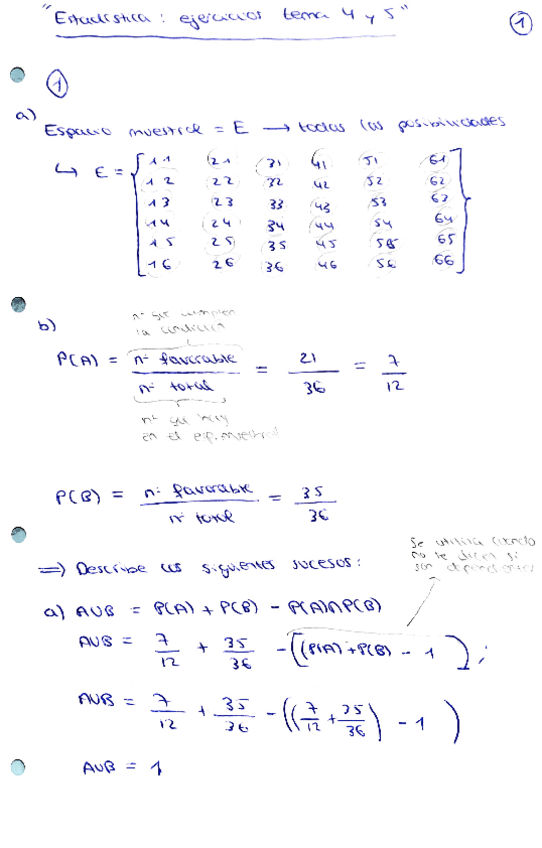 "Estadística: ejercicios tema 4 y 5"
1
1
a)
Espacio muestral = E → todas las posibilidades
↳ E = { 11 21 31 41 51 61
12 22 32 42 52 62
13 23 33 43 53 63
14 24 34 44 54 64
15 25 35 45 55 65
16 26 36 46 56 66 }
b)
nº que cumplen
la condición
P(A) = nº favorable / nº total = 21 / 36 = 7 / 12
nº que hay
en el esp. muestral
P(B) = nº favorable / nº total = 35 / 36
Se utiliza cuando
no te dicen si
son dependientes
⇒ Describe los siguientes sucesos:
a) AUB = P(A) + P(B) - P(A)∩P(B)
AUB = 7/12 + 35/36 - ((P(A) + P(B) - 1);
AUB = 7/12 + 35/36 - ((7/12 + 35/36) - 1)
AUB = 1